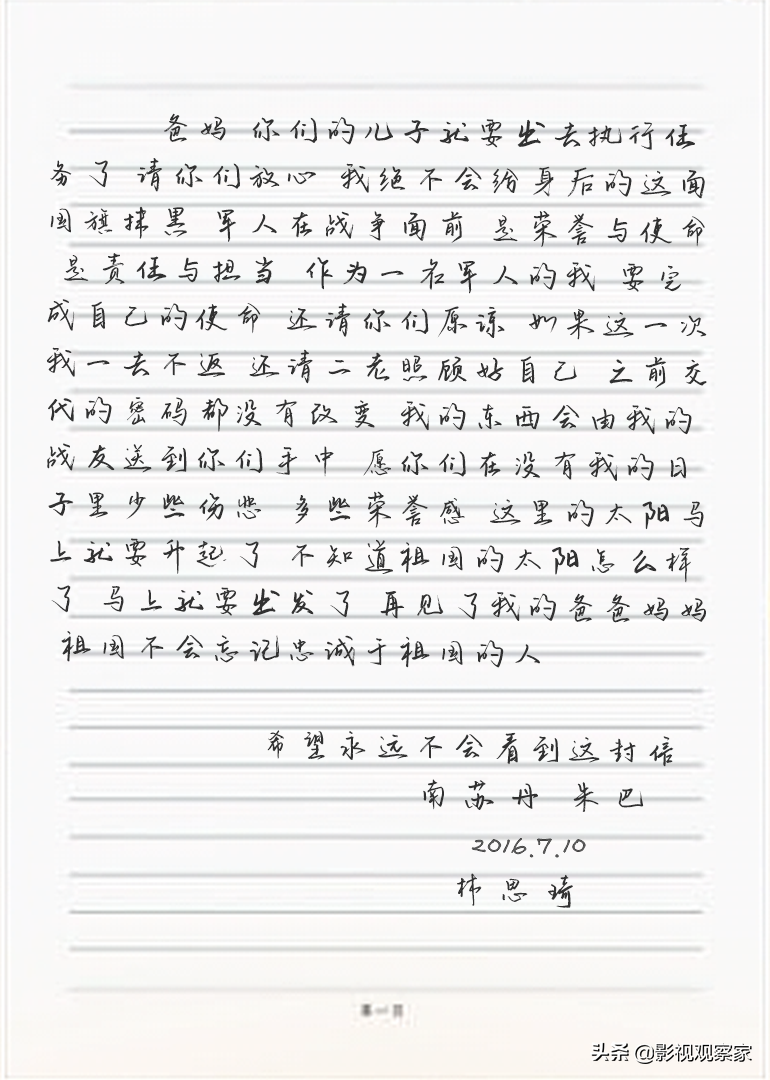 爸妈 你们的儿子就要出去执行任
务了 请你们放心 我绝不会给身后的这面
国旗抹黑 军人在战争面前 是荣誉与使命
是责任与担当 作为一名军人的我 要完
成自己的使命 还请你们原谅 如果这一次
我一去不返 还请二老照顾好自己 之前交
代的密码都没有改变 我的东西会由我的
战友送到你们手中 愿你们在没有我的日
子里少些伤悲 多些荣誉感 这里的太阳马
上就要升起了 不知道祖国的太阳怎么样
了 马上就要出发了 再见了我的爸爸妈妈
祖国不会忘记忠诚于祖国的人
希望永远不会看到这封信
南苏丹 朱巴
2016.7.10
林思琦
第一页
头条 @影视观察家